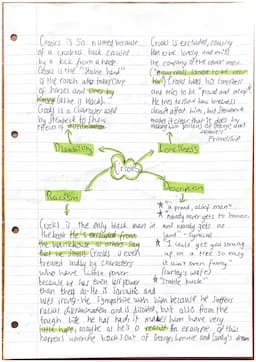 Crooks is so named because
of a crooked back caused
by a kick from a horse.
Crooks is the "stable hand"
of the ranch who takes care
of horses and
(alas he is black).
Crooks is a character used
by Steinbeck to show
effects of discrimination
Crooks is excluded, causing
him to be lonely and miss
the company of the other men.
Crooks hides his loneliness
and tries to be "proud and aloof"
He tries to show how loneliness
doesn't affect him, but Steinbeck
makes it clear that it does by
making him jealous of George and
Lennie's
Friendship
Disability
Loneliness
Crooks
Racism
Description
"a proud, aloof man"
"nobody never gets to heaven,
and nobody gets no
land" - cynical
"I could get you strung
up on a tree so easy
it ain't even funny"
(curley's wife)
"stable buck"
Crooks is the only black man in
the book. He is excluded from
the bunkhouse as others say
that he smells. Crooks is even
treated badly by characters
who have little power
because he has even less power
than they do. He is sarcastic and
uses irony. We sympathise with him because he suffers
racial discrimination and is disabled, but also from the
tough life he has had. It makes him have very
little hope, maybe as he's a realist. An example of this
happens when he backs out of George, Lennie and Candy's dream